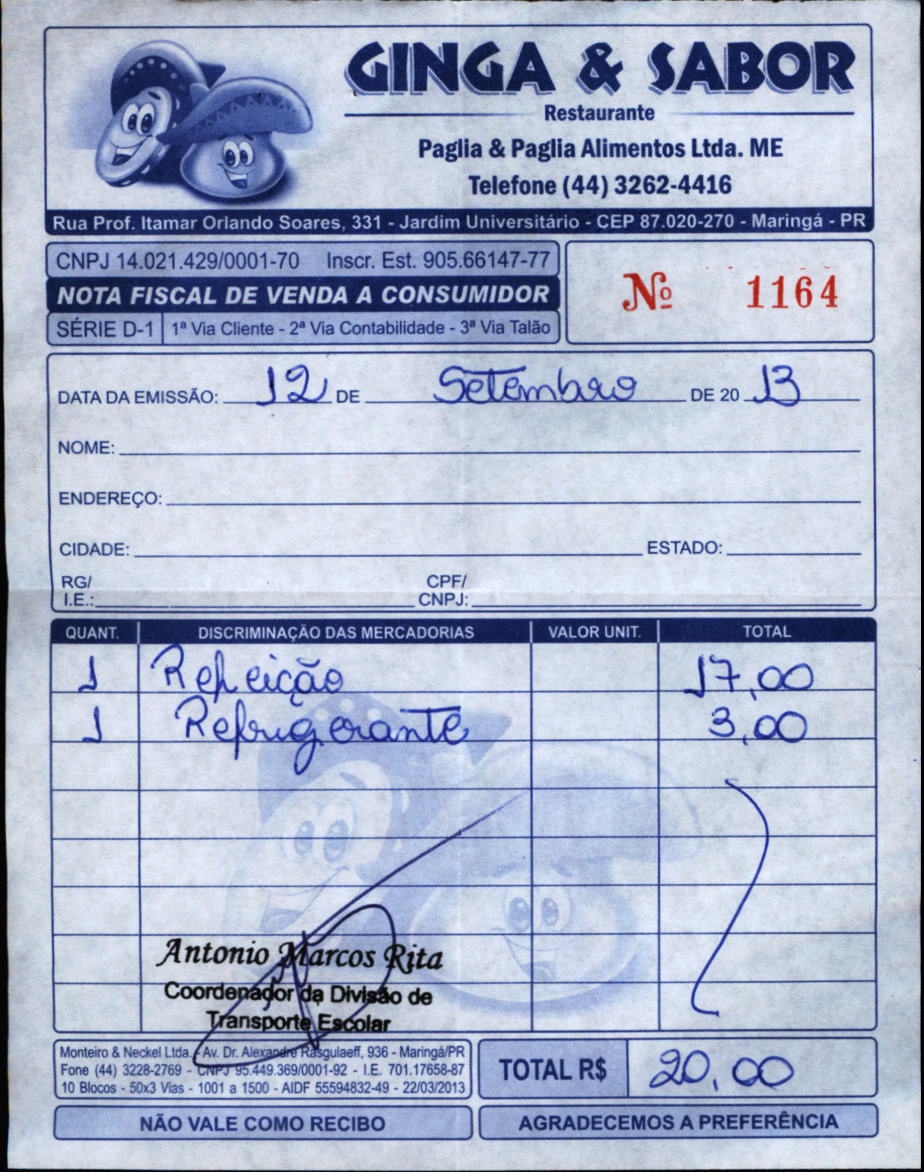 GINGA & SABOR
Restaurante
Paglia & Paglia Alimentos Ltda. ME
Telefone (44) 3262-4416
Rua Prof. Itamar Orlando Soares, 331 - Jardim Universitário - CEP 87.020-270 - Maringá - PR
CNPJ 14.021.429/0001-70 Inscr. Est. 905.66147-77
NOTA FISCAL DE VENDA A CONSUMIDOR
Nº 1164
SÉRIE D-1 1ª Via Cliente - 2ª Via Contabilidade - 3ª Via Talão
DATA DA EMISSÃO: 12 DE Setembro DE 20 13
NOME:
ENDEREÇO:
CIDADE: ESTADO:
RG/ I.E.: CPF/ CNPJ:
QUANT. DISCRIMINAÇÃO DAS MERCADORIAS VALOR UNIT. TOTAL
1 Refeição 17,00
1 Refrigerante 3,00
Antonio Marcos Rita
Coordenador da Divisão de
Transporte Escolar
Monteiro & Neckel Ltda. - Av. Dr. Alexandre Rasgulaeff, 936 - Maringá/PR
Fone (44) 3228-2769 - CNPJ 95.449.369/0001-92 - I.E. 701.17658-87
10 Blocos - 50x3 Vias - 1001 a 1500 - AIDF 55594832-49 - 22/03/2013
TOTAL R$ 20,00
NÃO VALE COMO RECIBO
AGRADECEMOS A PREFERÊNCIA